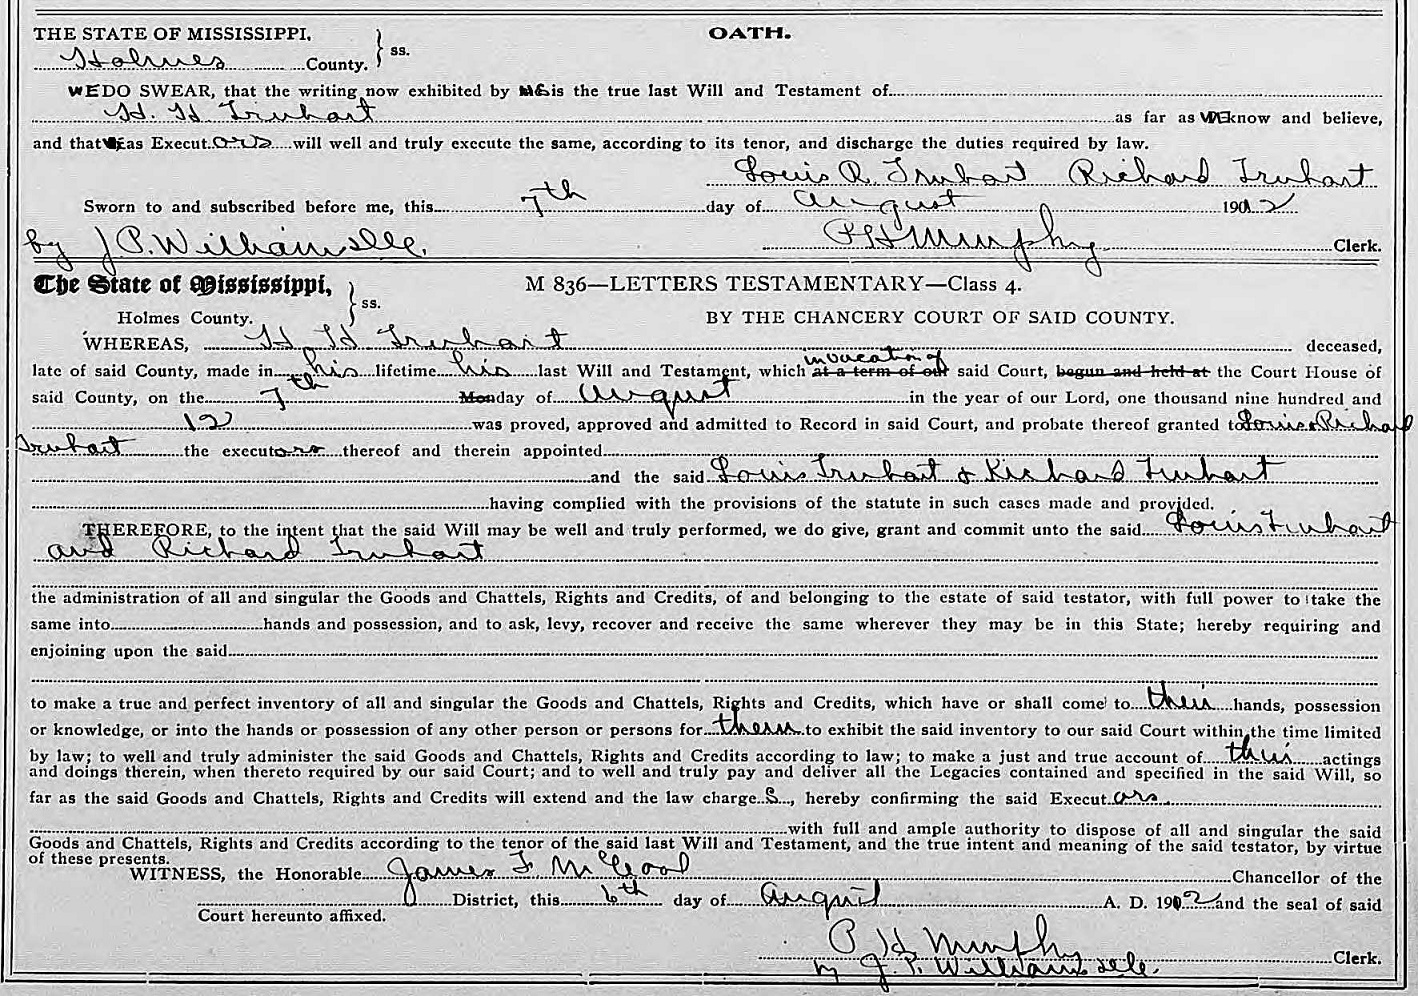 THE STATE OF MISSISSIPPI, } ss. OATH.
Holmes County.
WE DO SWEAR, that the writing now exhibited by is the true last Will and Testament of
H. H. Truhart as far as WE know and believe,
and that WE as Executors will well and truly execute the same, according to its tenor, and discharge the duties required by law.
Louis R. Truhart Richard Truhart
Sworn to and subscribed before me, this 7th day of August 1912
by J. P. Williams P H Murphy Clerk.
The State of Mississippi, } ss. M 836—LETTERS TESTAMENTARY—Class 4.
Holmes County. BY THE CHANCERY COURT OF SAID COUNTY.
WHEREAS, H H Truhart deceased,
invacation of
late of said County, made in his lifetime his last Will and Testament, which at a term of our said Court, begun and held at the Court House of
said County, on the 7th Monday of August in the year of our Lord, one thousand nine hundred and
12 was proved, approved and admitted to Record in said Court, and probate thereof granted to Louis & Richard
Truhart the executors thereof and therein appointed
and the said Louis Truhart & Richard Truhart
having complied with the provisions of the statute in such cases made and provided.
THEREFORE, to the intent that the said Will may be well and truly performed, we do give, grant and commit unto the said Louis Truhart
and Richard Truhart
the administration of all and singular the Goods and Chattels, Rights and Credits, of and belonging to the estate of said testator, with full power to take the
same into hands and possession, and to ask, levy, recover and receive the same wherever they may be in this State; hereby requiring and
enjoining upon the said
to make a true and perfect inventory of all and singular the Goods and Chattels, Rights and Credits, which have or shall come to their hands, possession
or knowledge, or into the hands or possession of any other person or persons for them to exhibit the said inventory to our said Court within the time limited
by law; to well and truly administer the said Goods and Chattels, Rights and Credits according to law; to make a just and true account of their actings
and doings therein, when thereto required by our said Court; and to well and truly pay and deliver all the Legacies contained and specified in the said Will, so
far as the said Goods and Chattels, Rights and Credits will extend and the law charge S, hereby confirming the said Executors
with full and ample authority to dispose of all and singular the said
Goods and Chattels, Rights and Credits according to the tenor of the said last Will and Testament, and the true intent and meaning of the said testator, by virtue
of these presents.
WITNESS, the Honorable James F McCool Chancellor of the
District, this 6th day of August A. D. 1912 and the seal of said
Court hereunto affixed.
P H Murphy Clerk.
by J. P. Williams